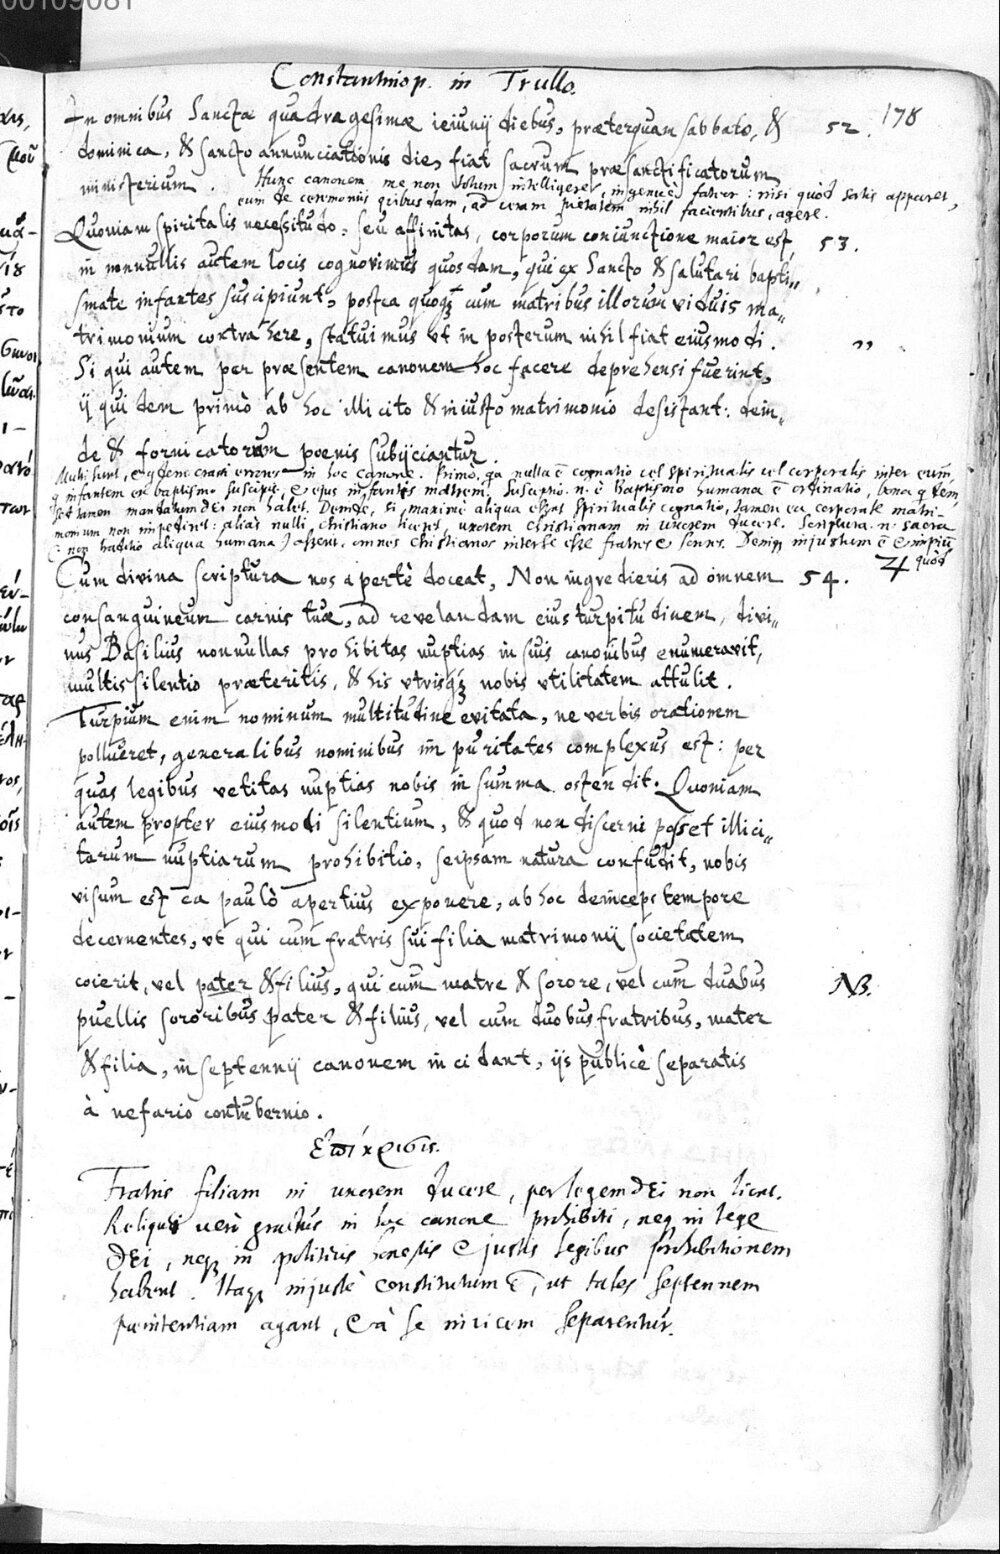 00109081
Constantinop. in Trullo.
178
In omnibus Sanctæ quadragesimæ ieiunij diebus, præterquam sabbato, & 52.
dominica, & sancto annunciationis die, fiat sacrum præsanctificatorum
ministerium.
Hunc canonem me non totum intelligere, ingenuè fateor: nisi quòd satis apparet,
eum de ceremoniis quibusdam, ad veram pietatem nihil facientibus, agere.
Quoniam spiritalis necessitudo, seu affinitas, corporum coniunctione maior est, 53.
in nonnullis autem locis cognovimus quosdam, qui ex Sancto & salutari bapti=
smate infantes suscipiunt, postea quoqz cum matribus illorum viduis ma=
trimonium contrahere, statuimus vt in posterum nihil fiat eiusmodi. ,,
Si qui autem per præsentem canonem hoc facere deprehensi fuerint,
ij quidem primò ab hoc illicito & iniusto matrimonio desistant: dein=
de & fornicatorum poenis subijciantur.
Multi sunt, eqdem crassi errores in hoc canone. Primo, qa nulla ē cognatio vel spiritualis vel corporalis inter eum,
q infantem ex baptismo suscipit, & ejus infantis matrem. Susceptio .n. è baptismo humana ē ordinatio, bona qdem,
sed tamen mandatum dei non habet. Deinde, si maximè aliqua esset spiritualis cognatio, tamen ea corporale matri-
monium non impediret: aliàs nulli christiano liceret, uxorem christianam in uxorem ducere. Scriptura .n. sacra
(non traditio aliqua humana) asserit, omnes christianos inter se esse fratres & sorores. Deniqz injustum ē & impiū
quòd
Cum divina scriptura nos apertè doceat, Non ingredieris ad omnem 54.
consanguineum carnis tuæ, ad revelandam eius turpitudinem, divi=
nus Basilius nonnullas prohibitas nuptias in suis canonibus enumeravit,
multis silentio præteritis, & his vtrisqz nobis vtilitatem attulit.
Turpium enim nominum multitudine evitata, ne verbis orationem
pollueret, generalibus nominibus impuritates complexus est: per
quas legibus vetitas nuptias nobis in summa ostendit. Quoniam
autem propter eiusmodi silentium, & quod non discerni posset illici=
tarum nuptiarum prohibitio, seipsam natura confudit, nobis
visum est ea paulò apertius exponere, ab hoc deinceps tempore
decernentes, vt qui cum fratris sui filia matrimonij societatem
coierit, vel pater & filius, qui cum matre & sorore, vel cum duabus NB.
puellis sororibus pater & filius, vel cum duobus fratribus, mater
& filia, in septennij canonem incidant, ijs publicè separatis
à nefario contubernio.
Ἐπίκρισις.
Fratris filiam in uxorem ducere, per legem DEI non licet.
Reliqui verò gradus in hoc canone prohibiti, neqz in lege
DEI, neqz in politicis honestis & justis legibus prohibitionem
habent. Itaqz injustè constitutum ē, ut tales septennem
pœnitentiam agant, & à se invicem separentur.